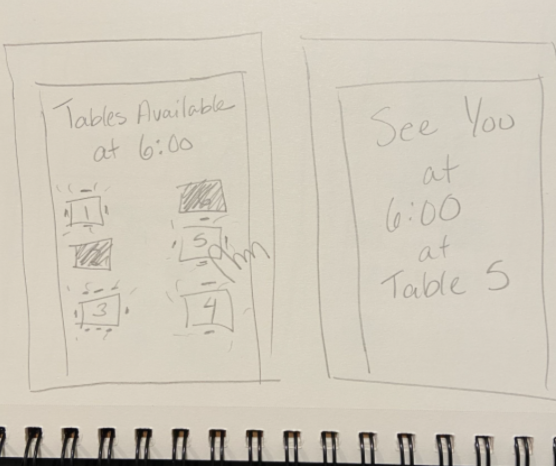 Tables Available
at 6:00
1
5
3
4
See You
at
6:00
at
Table 5